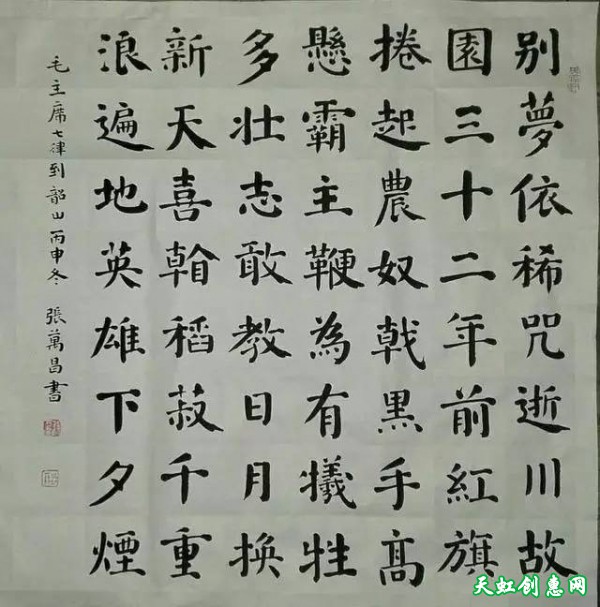 别夢依稀咒逝川故
園三十二年前紅旗
捲起農奴戟黑手高
懸霸主鞭為有犧牲
多壯志敢教日月換
新天喜看稻菽千重
浪遍地英雄下夕煙
毛主席七律到韶山丙申冬 張萬昌書
天虹创惠网